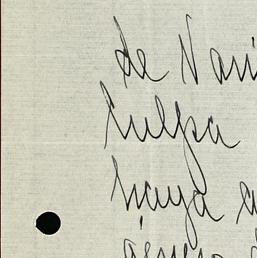 de Nari
culpa
haya a